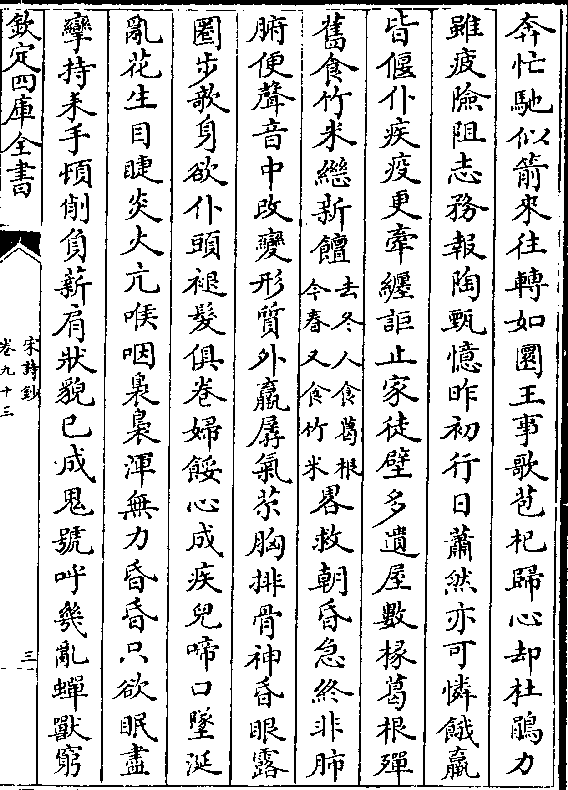 奔忙馳似箭來往轉如圜王事歌苞杞歸心却杜鵑力
雖疲險阻志務報陶甄憶昨初行日蕭然亦可憐餓羸
皆偃仆疾疫更牽纏詎止家徒壁多遺屋數椽葛根殫
舊食竹米繼新饘去冬人食葛根今春又食竹米畧救朝昏急終非肺
腑便聲音中改變形質外羸孱氣苶胸排骨神昏眼露
圈步欹身欲仆頭褪髮俱卷婦餒心成疾兒啼口墜涎
亂花生目睫炎火亢喉咽裊裊渾無力昏昏只欲眠盡
攣持耒手頓削負薪肩狀貌已成鬼號呼幾亂蟬獸窮
欽定四庫全書
宋詩鈔
卷九十三
三